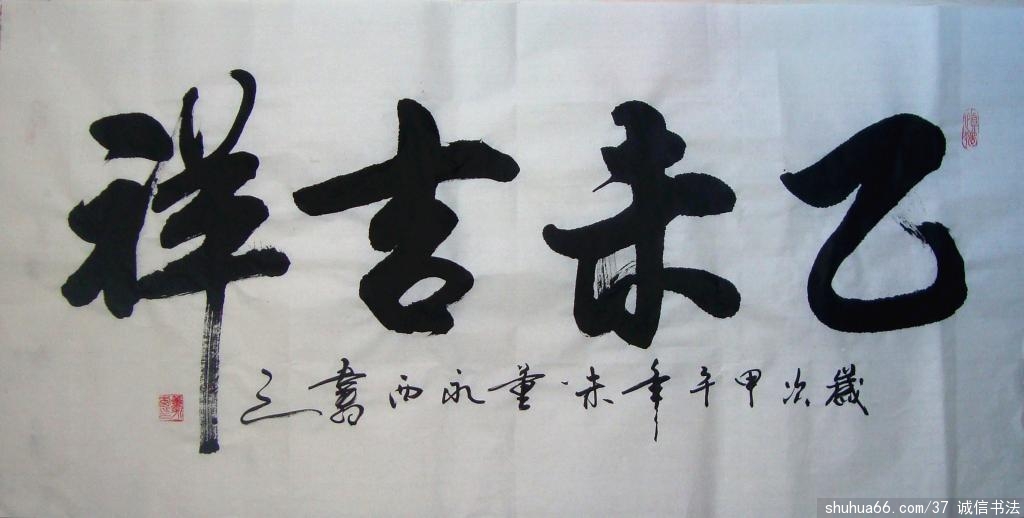 乙未吉祥
歲次甲午年末董永西書
shuhua66.com/37 诚信书法